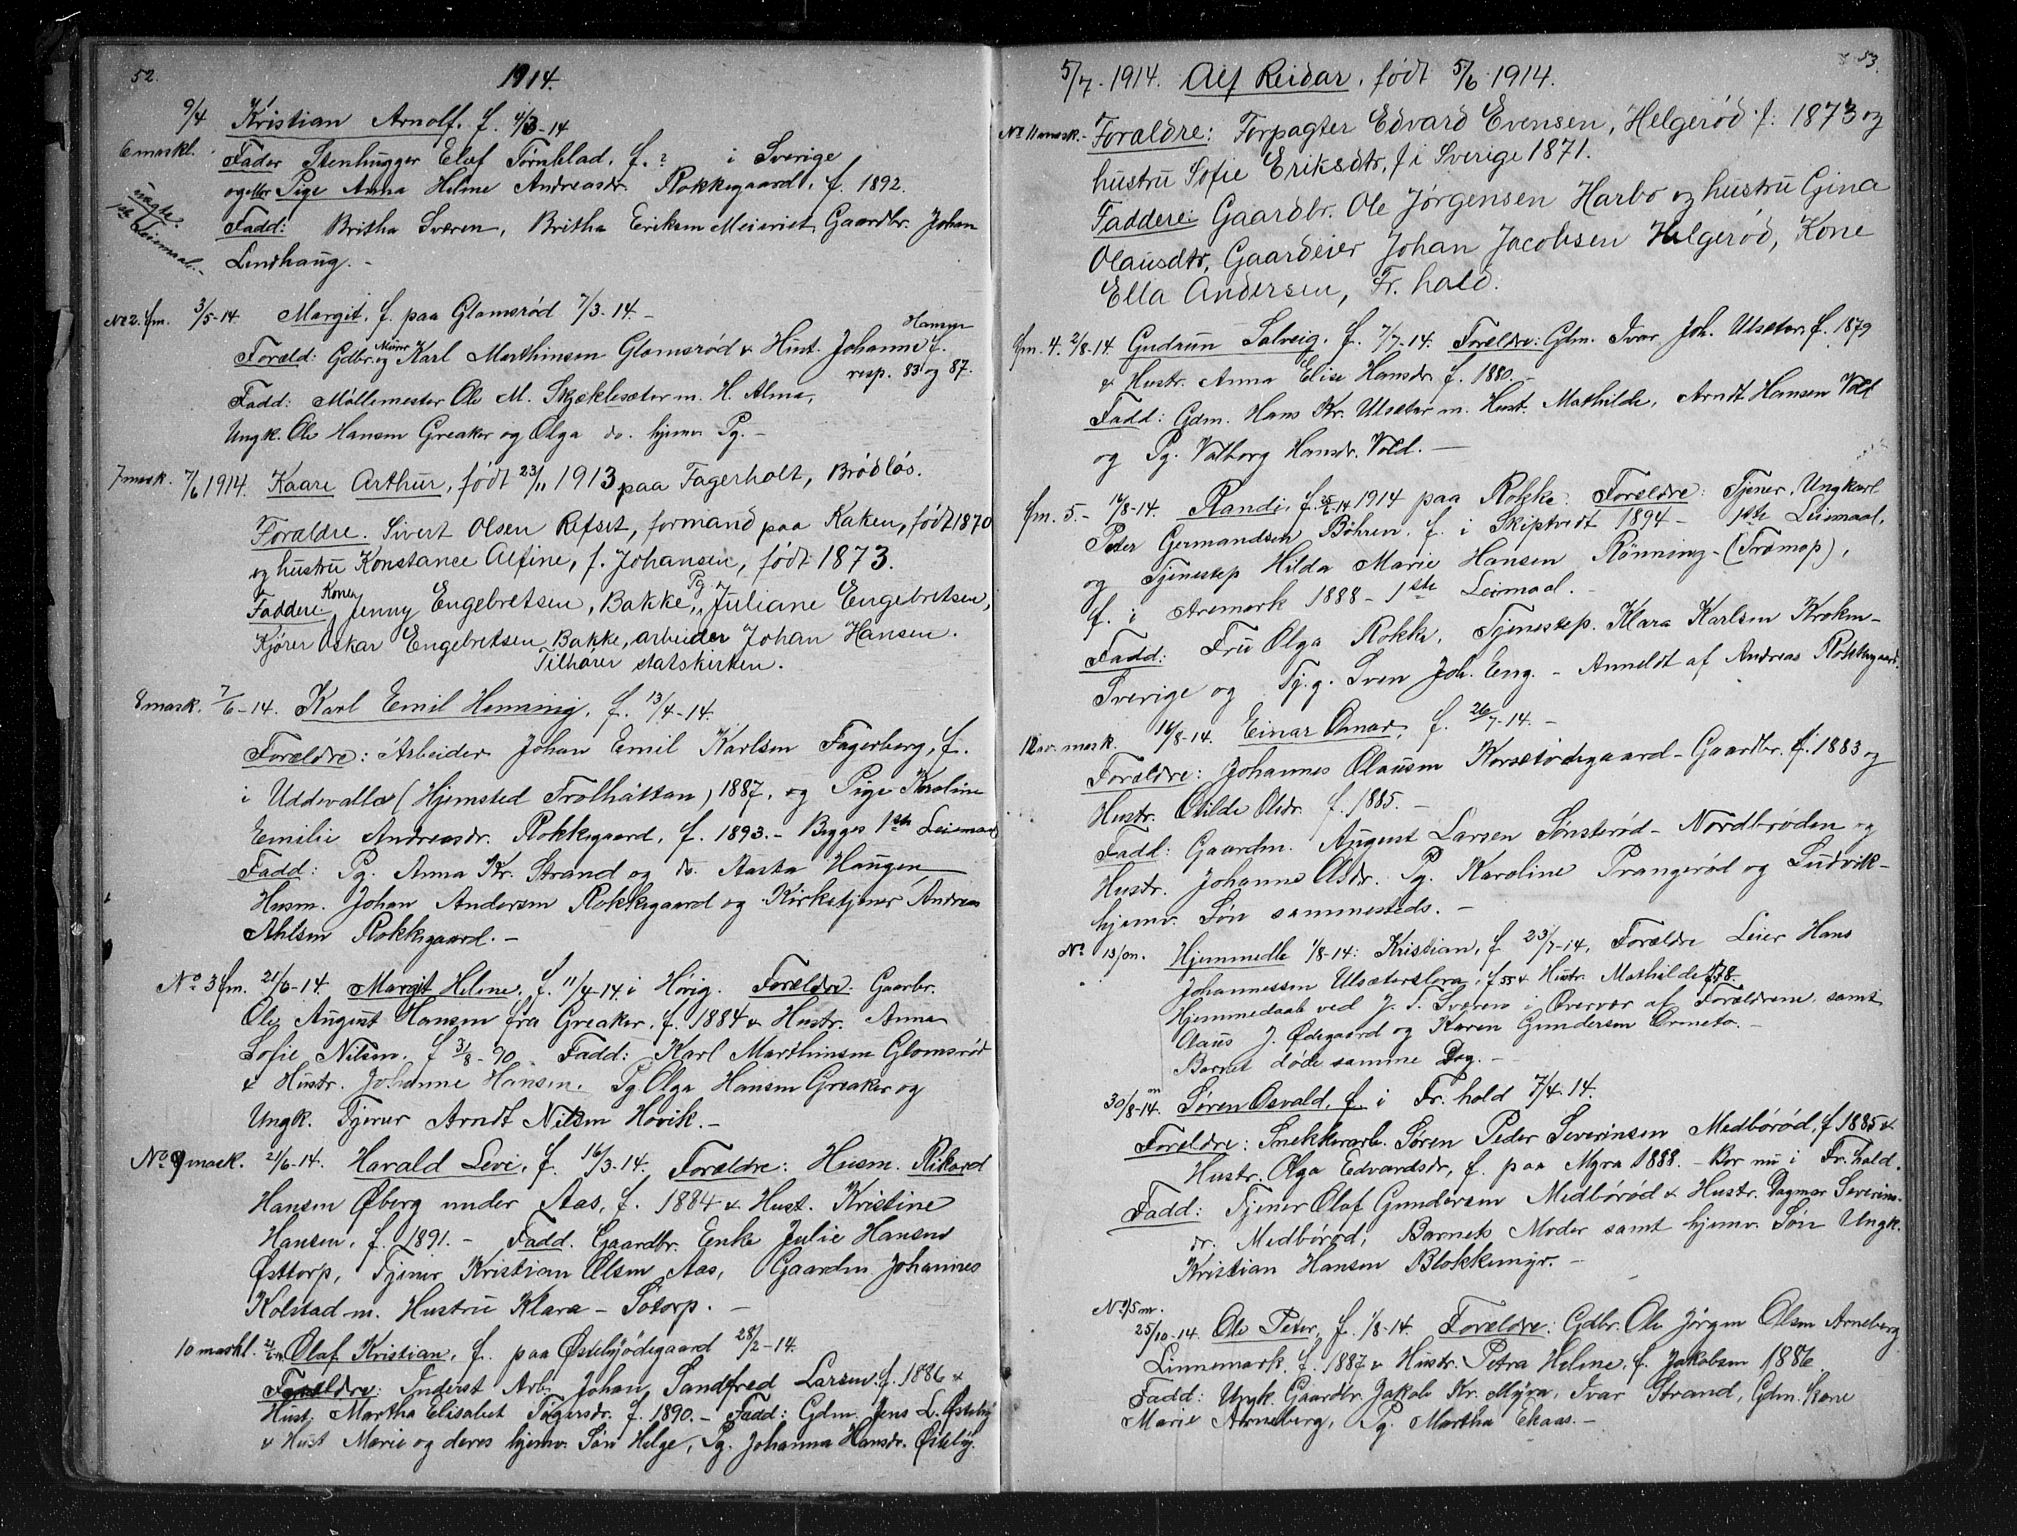 52.
1914.
9/4 Kristian Arnolf. f. 4/3-14
6 maskl. Fader Stenhugger Elof Törnblad. f. ? i Sverige
uægte 1ste Leiermaal.- ugift Pige Anna Helene Andreasdr. Rokkegaard. f. 1892.
Fadd: Britha Sværen, Britha Eriksen Meieriet, Gaardbr. Johan
Lundhaug. -
No 2. fm. 3/5-14. Margit, f. paa Glomsrød 7/3-14. -
Foreld: Gdbr. og Murer Karl Marthinsen Glomsrød & Hust. Johanne f. Hansen
resp. 83 og 87.
Fadd: Møllemester Ole M. Skjeklesæter m. H. Alma,
Ungk. Ole Hansen Greaker og Olga do. hjemv. Pg. -
7 mask. 7/6 1914. Kaare Arthur, født 23/11 1913 paa Fagerholt, Brødløs.
Forældre. Sivert Olsen Refset, formand paa Kaken, født 1870
og hustru Konstance Alfine, f. Johansen, født 1873.
Faddere, Kone Jenny Engebretsen, Bakke, Pg. Juliane Engebretsen,
Kjører Oskar Engebretsen Bakke, arbeider Johan Hansen.
Tilhører statskirken.
8 mask. 7/6-14. Karl Emil Henning, f. 13/4-14.
Forældre: Arbeider Johan Emil Karlsen Fagerberg, f.
i Uddevalla (Hjemsted Trolhättan) 1887. og Pige Karoline
Emilie Andreasdr. Rokkegaard, f. 1893. - Begges 1ste Leiermaal
Fadd: Pg. Anna Kr. Strand og do. Aasta Haugen
Husm. Johan Andersen Rokkegaard og Kirketjener Andreas
Ahlsen Rokkegaard. -
No 3 fm. 21/6-14. Margit Helene, f. 11/4-14 i Hövig. Foreldre. Gaarbr.
Ole August Hansen fra Greaker. f. 1884 & Hustr. Anna
Sofie Nilsen. f 3/8-90. Fadd: Karl Marthinsen Glomsrød
& Hustr. Johanne Hansen. Pg Olga Hansen Greaker og
Ungk. Tjener Arndt Nilsen Hövik. -
No 9 mask. 21/6-14. Harald Levi, f. 16/3-14. Forældre: Husm. Rikard
Hansen Øberg under Aas, f. 1884 & Hust. Kristine
Hansen, f. 1891. - Fadd. Gaardbr. Enke Julie Hansen
Østtorp, Tjener Kristian Olsen Aas, Gaardm. Johannes
Kolstad m. Hustru Klara - Sotorp. -
10 maskl. 21/6-14 Olaf Kristian, f. paa Østebyödegaard 28/2-14.
Forældre: Inderst Arb. Johan Sandfred Larsen. f. 1886 &
Hust. Martha Elisabet Tøgersdr. f. 1890. - Fadd: Gdm. Jens L. Østeby
& Hust Marie og deres hjemv. Sön Helge, Pg. Johanna Hansdr. Østeby.
53.
5/7-1914. Alf Reidar, født 5/6 1914.
No 11 mask. - Forældre: Forpagter Edvard Evensen, Helgerød f. 1873 og
hustru Sofie Eriksdtr. f i Sverige 1871.
Faddere: Gaardbr. Ole Jørgensen Harbo og hustru Gina
Olausdtr, Gaardeier Johan Jacobsen Helgerød, Kone
Ella Andersen, Fr. hald.
fm. 4. 2/8-14 Gudrun Solveig. f. 7/7-14. Foreldre: Gdm. Ivar Joh. Ulsæter f. 1879
& Hustr. Anna Elise Hansdr. f. 1880. -
Fadd: Gdm. Hans Kr. Ulsæter m. Hust. Mathilde, Arndt Hansen Vold
og Pg. Valborg Hansdr. Vold. -
fm. 5. - 16/8-14. Randi, f. 1914 paa Rokke. Forældre: Tjener. Ungkarl
Peter Germandsen Böhren. f. i Skiptvedt 1894 - 1ste Leiemaal,
og Tjenestep Hilda Marie Hansen Rönning - (Trömop),
f. i Aremark 1888 - 1ste Leiemaal.
Fadd: Fru Olga Rokke. Tjenestep. Klara Karlsen Kroken -
Sverige og Tj. g. Sven Joh. Eng. - Anmeldt af Andreas Rokkegaard.
12 mask. 16/8-14. Einar Osmar, f. 26/7-14. -
Forældre: Johannes Olausen Korsetødegaard - Gaardbr. f. 1883 og
Hustr. Otilde Olsdr. f. 1885. -
Fadd: Gaardm. August Larsen Sønsterød - Nordbrøden og
Hustr. Johanne Olsdr. Pg. Karoline Prangerød og Ludvik -
hjemv. Sön sammesteds. -
No 13/m. Hjemmedbt 1/8-14: Kristian, f. 23/7-14. Forældre Leier Hans
Johannessen Ulsæterslora, f 55 & Hustr. Mathilde f 78-
Hjemmedaab ved J. S. Sværen i Overvær af Forældrene. samt
Claus J. Ødegaard og Karen Gundersen Ormeto. -
Barnet døde samme Dag. -
30/8-14. m Søren Osvald, f. i Fr. hald 7/4-14.
Foreldre: Snekkerarb. Søren Peder Severinsen Medbörød, f 1885 &
Hustr. Olga Edvardsdr, f. paa Myra 1888. - Bor nu i Fr. hald.
Fadd: Tjener Olaf Gundersen Medbörød & Hustr. Dagmar Severins-
dr. Medbörød, Barnets Moder samt hjemv. Sön Ungk.
Kristian Hansen Blokkemyr. -
No 15 m.
25/10-14. Ole Peter, f. 1/8-14. Foreldre. Gdbr. Ole Jörgen Olsen Arneberg
Linnemark. f. 1887 & Hustr. Petra Helene, f. Jakobsen 1886
Fadd: Ungk. Gaardbr. Jakob Kr. Myra, Ivar Strand, Gdm. Kone
Marie Arneberg, Pg Martha Ekaas. -